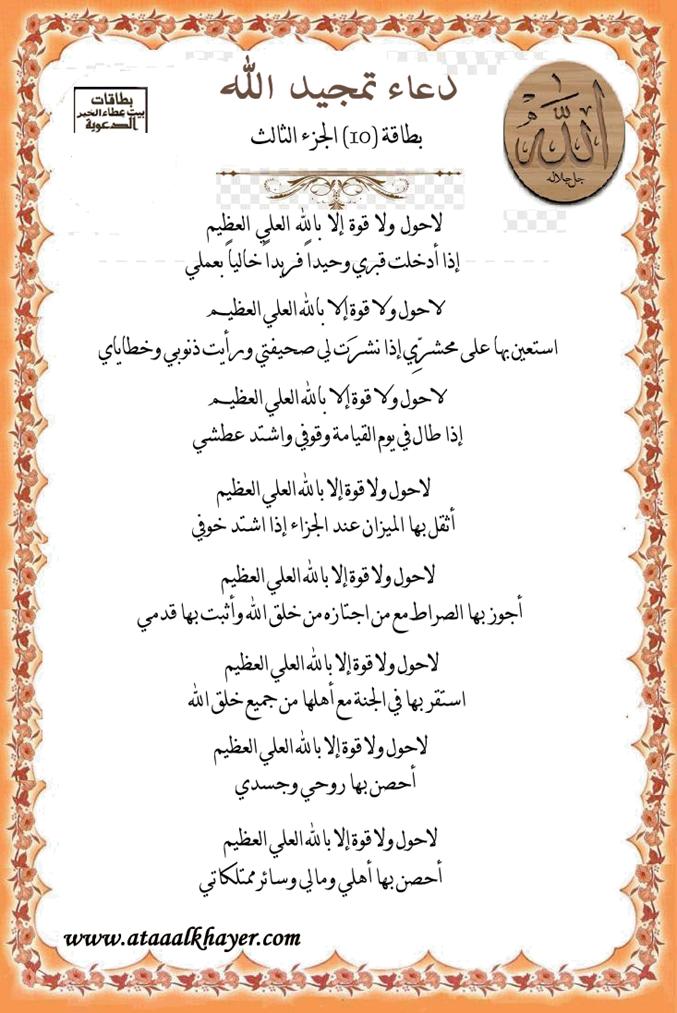 دعاء تمجيد الله
بطاقات
بيت عطاء الخير
الدعوية
الله
جل جلاله
بطاقة (10) الجزء الثالث
لاحول ولا قوة إلا بالله العلي العظيم
إذا أدخلت قبري وحيداً فريداً خالياً بعملي
لاحول ولا قوة إلا بالله العلي العظيم
استعين بها على محشري إذا نشرَت لي صحيفتي ورأيت ذنوبي وخطاياي
لاحول ولا قوة إلا بالله العلي العظيم
إذا طال في يوم القيامة وقوفي واشتد عطشي
لاحول ولا قوة إلا بالله العلي العظيم
أثقل بها الميزان عند الجزاء إذا اشتد خوفي
لاحول ولا قوة إلا بالله العلي العظيم
أجوز بها الصراط مع من اجتازه من خلق الله وأثبت بها قدمي
لاحول ولا قوة إلا بالله العلي العظيم
استقر بها في الجنة مع أهلها من جميع خلق الله
لاحول ولا قوة إلا بالله العلي العظيم
أحصن بها روحي وجسدي
لاحول ولا قوة إلا بالله العلي العظيم
أحصن بها أهلي ومالي وسائر ممتلكاتي
www.ataaalkhayer.com